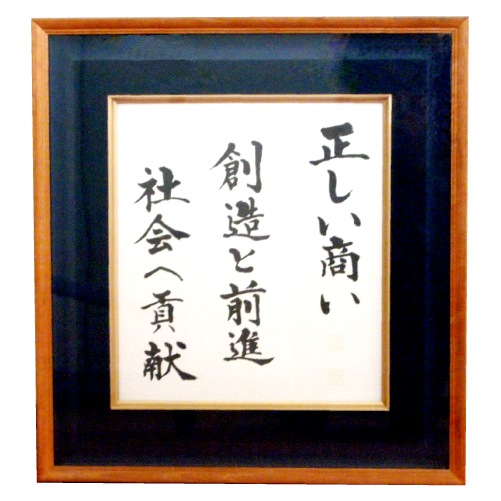 正しい商い
創造と前進
社会へ貢献